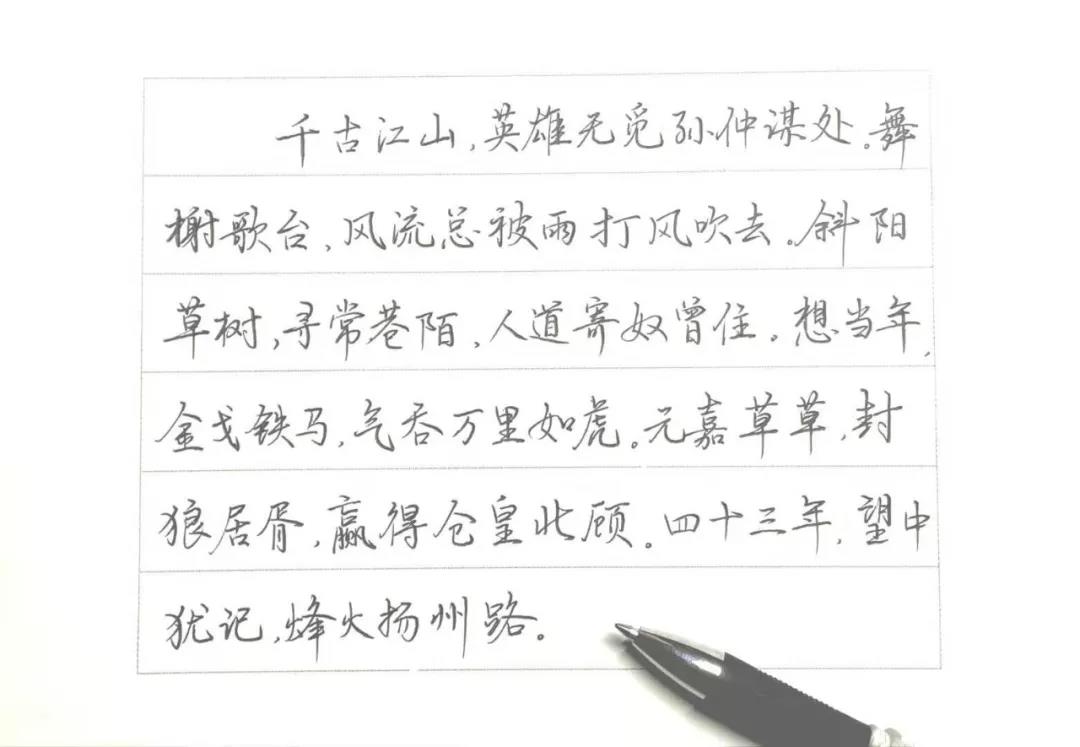 千古江山,英雄无觅孙仲谋处。舞
榭歌台,风流总被雨打风吹去。斜阳
草树,寻常巷陌,人道寄奴曾住。想当年,
金戈铁马,气吞万里如虎。元嘉草草,封
狼居胥,赢得仓皇北顾。四十三年,望中
犹记,烽火扬州路。